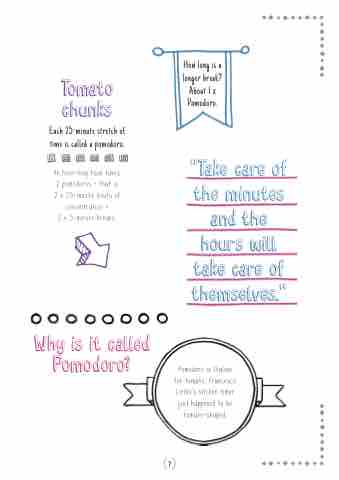 How long is a
longer break?
About 1 x
Pomodoro.
Tomato
chunks
Each 25-minute stretch of
time is called a pomodoro.
An hour-long task takes
2 pomodoros - that is
2 x 25-minute bouts of
concentration +
2 x 5-minute breaks.
"Take care of
the minutes
and the
hours will
take care of
themselves."
Why is it called
Pomodoro?
Pomodoro is Italian
for tomato. Francesco
Cirillo's kitchen timer
just happened to be
tomato-shaped.
(7)